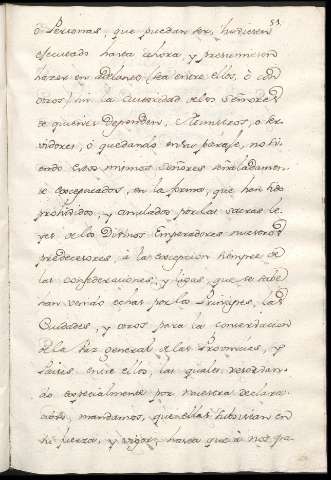 51.
ò Personas, que puedan ser, huviesen
efectuado hasta ahora, y presumiesen
hazer en adelante (sea entre ellos, ò con
otros) sin la autoridad de los Señores
de quienes dependen, Remissos, o ser-
vidores, ò quedando en su paraje, no si-
endo estos mismos Señores señaladamen-
te exceptuados, en la forma, que han sido
prohividos, y anulados por las sacras le-
yes de los Divinos Emperadores nuestros
predecesores, à la excepcion siempre de
las confederaciones, y ligas, que se sabe
han venido echas por los Principes, las
Ciudades, y otros para la conservacion
de la Paz general de las Provincias, y
Paises entre ellos, las quales quedan-
do especialmente por nuestra declara-
cion, mandamos, que ellas subsistan en
su fuerza, y vigor, hasta que à nos pa-